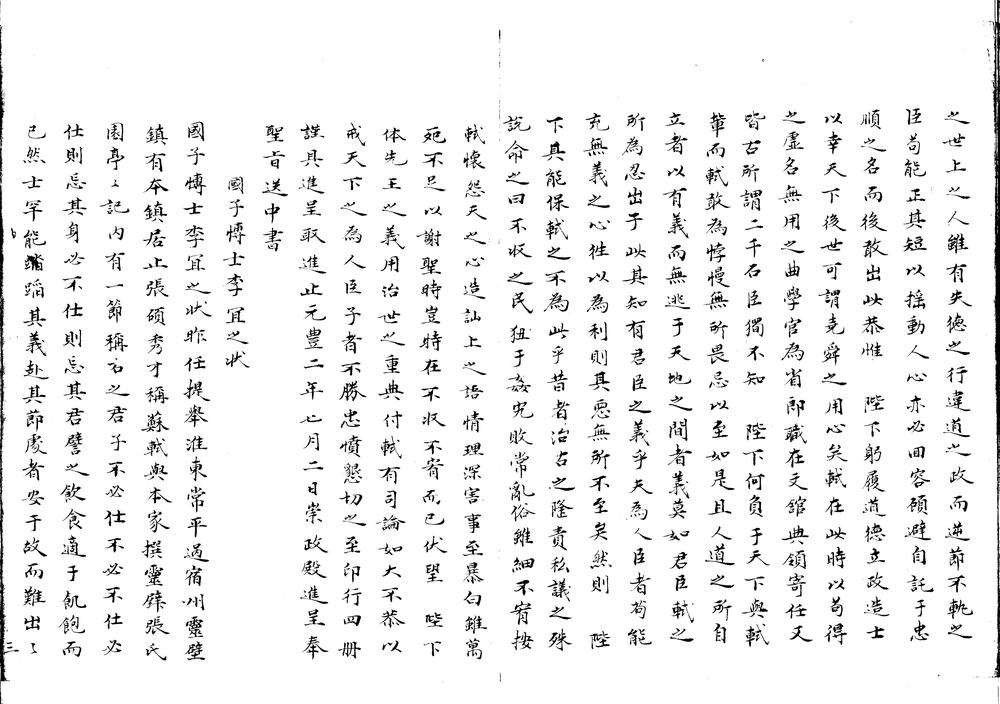 之世上之人雖有失德之行違道之政而逆節不軌之
臣苟能正其短以揺動人心亦必回容顧避自託于忠
順之名而後敢出此恭惟　陛下躬履道德立政造士
以幸天下後世可謂堯舜之用心矣軾在此時以苟得
之虚名無用之曲學官為省郎職在文舘典領寄任又
皆古所謂二千石臣獨不知　陛下何負于天下與軾
輩而軾敢為悖慢無所畏忌以至如是且人道之所自
立者以有義而無逃于天地之間者義莫如君臣軾之
所為忍出于此其知有君臣之義乎夫為人臣者苟能
充無義之心徃以為利則其惡無所不至矣然則　陛
下其能保軾之不為此乎昔者治古之隆責私議之殊
說命之曰不収之民狃于姦宄敗常亂俗雖細不宥按
軾懷怨天之心造訕上之語情理深害事至暴白雖萬
死不足以謝聖時豈特在不収不宥而已伏望　陛下
体先王之義用治世之重典付軾有司論如大不恭以
戒天下之為人臣子者不勝忠憤懇切之至印行四册
謹具進呈取進止元豊二年七月二日崇政殿進呈奉
聖旨送中書
國子博士李宜之狀
國子博士李宜之狀昨任提舉淮東常平過宿州靈壁
鎮有本鎮居止張碩秀才稱蘇軾與本家撰靈壁張氏
園亭〻記内有一節稱古之君子不必仕不必不仕必
仕則忘其身必不仕則忘其君譬之飲食適于飢飽而
已然士罕能蹈其義赴其節處者安于故而難出〻
三